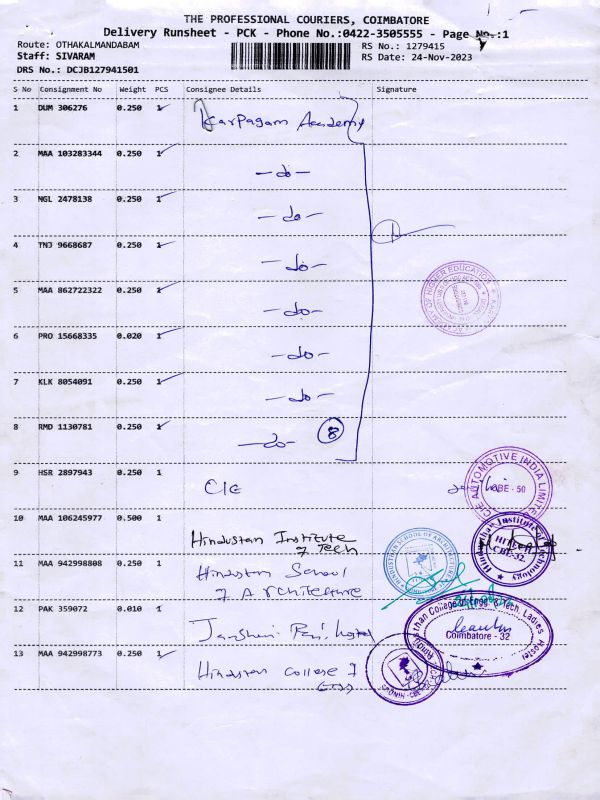 THE PROFESSIONAL COURIERS, COIMBATORE
Delivery Runsheet - PCK - Phone No.:0422-3505555 - Page No.:1
Route: OTHAKALMANDABAM RS No.: 1279415
Staff: SIVARAM RS Date: 24-Nov-2023
DRS No.: DCJB127941501
S No Consignment No Weight PCS Consignee Details Signature
1 DUM 306276 0.250 1 Karpagam Academy
2 MAA 103283344 0.250 1 -do-
3 NGL 2478138 0.250 1 -do-
4 TNJ 9668687 0.250 1 -do-
5 MAA 862722322 0.250 1 -do-
6 PRO 15668335 0.020 1 -do-
7 KLK 8054091 0.250 1 -do-
8 RMD 1130781 0.250 1 -do- 8
9 HSR 2897943 0.250 1 CIE
CIE AUTOMOTIVE INDIA LIMITED
CBE - 50
10 MAA 106245977 0.500 1 Hindustan Institute
of Tech
Hindusthan Institute of Technology
CBE-32.
11 MAA 942998808 0.250 1 Hindustn School
of Architecture
HINDUSTHAN SCHOOL OF ARCHITECTURE
12 PAK 359072 0.010 1
Hindusthan College of Engg. & Tech, Ladies Hostel
Coimbatore - 32
13 MAA 942998773 0.250 1 Hindustan College of